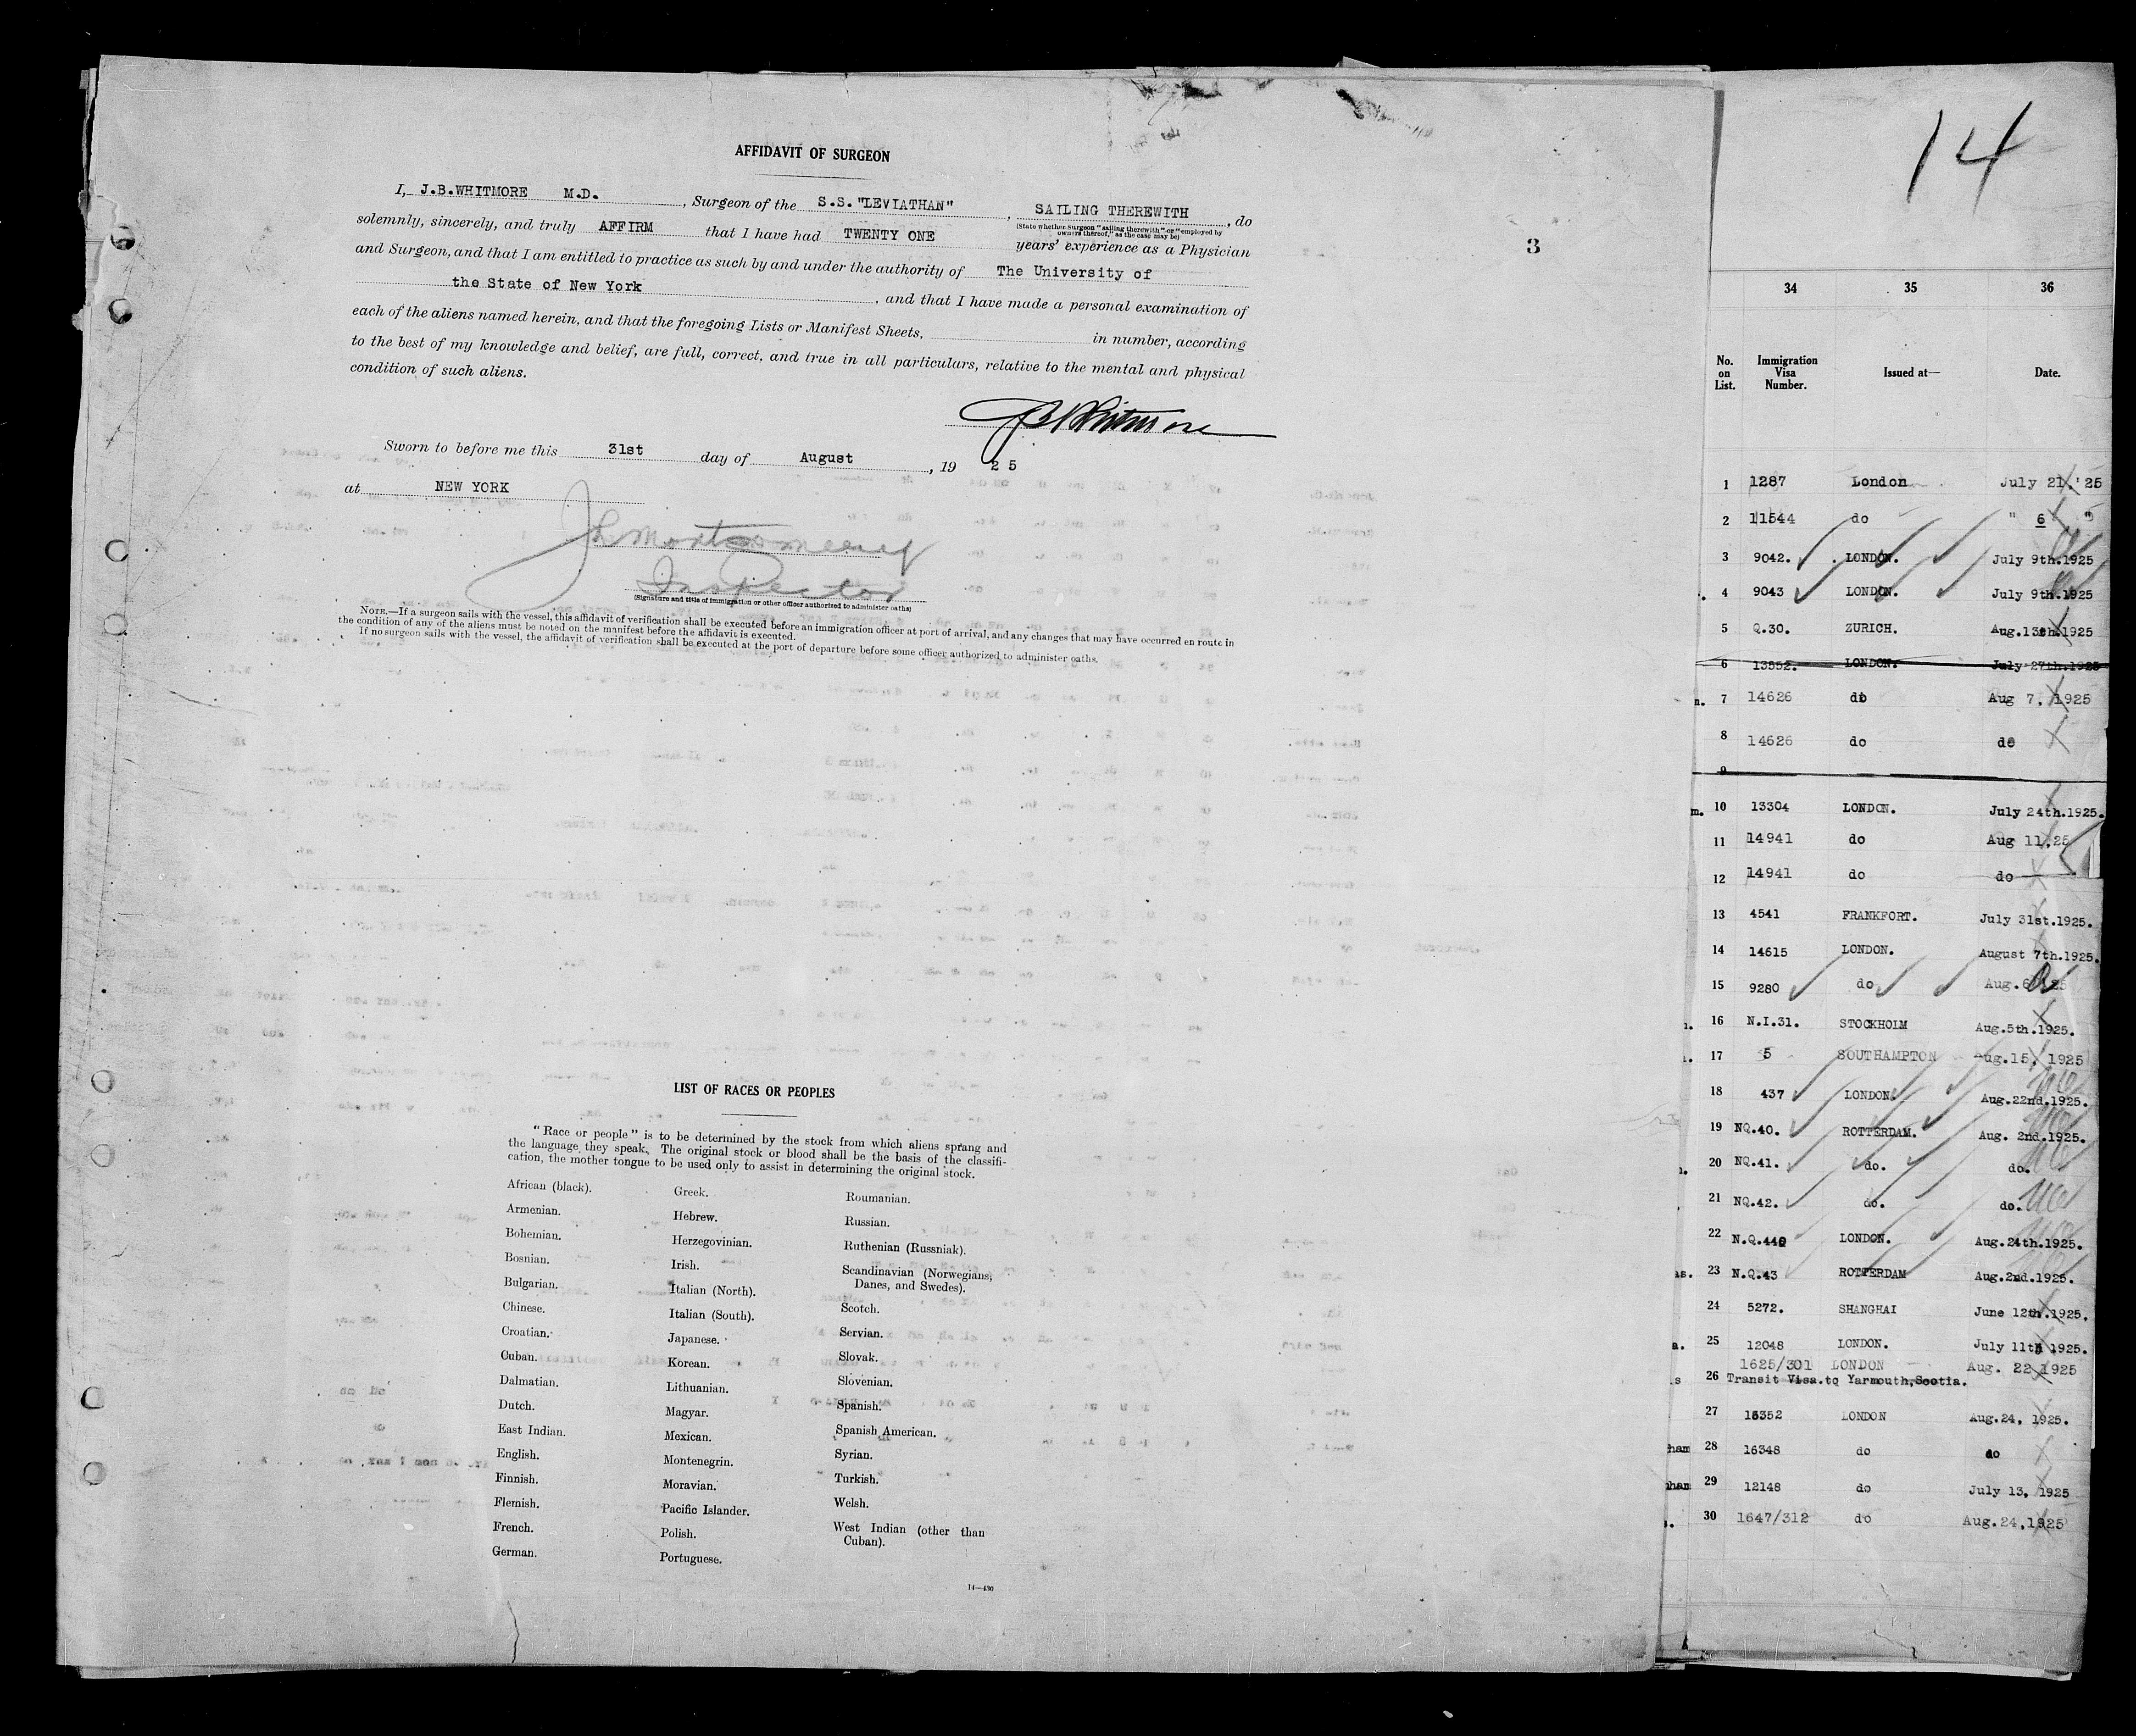 AFFIDAVIT OF SURGEON
I, J.B.WHITMORE M.D. , Surgeon of the S.S."LEVIATHAN" , SAILING THEREWITH , do
(State whether Surgeon "sailing therewith" or "employed by
owners thereof," as the case may be)
solemnly, sincerely, and truly AFFIRM that I have had TWENTY ONE years' experience as a Physician
and Surgeon, and that I am entitled to practice as such by and under the authority of The University of
the State of New York , and that I have made a personal examination of
each of the aliens named herein, and that the foregoing Lists or Manifest Sheets, in number, according
to the best of my knowledge and belief, are full, correct, and true in all particulars, relative to the mental and physical
condition of such aliens.
JBWhitmore
Sworn to before me this 31st day of August , 19 2 5
at NEW YORK
Inspector
(Signature and title of immigration or other officer authorized to administer oaths)
NOTE.—If a surgeon sails with the vessel, this affidavit of verification shall be executed before an immigration officer at port of arrival, and any changes that may have occurred en route in
the condition of any of the aliens must be noted on the manifest before the affidavit is executed.
If no surgeon sails with the vessel, the affidavit of verification shall be executed at the port of departure before some officer authorized to administer oaths.
3
LIST OF RACES OR PEOPLES
"Race or people" is to be determined by the stock from which aliens sprang and
the language they speak. The original stock or blood shall be the basis of the classifi-
cation, the mother tongue to be used only to assist in determining the original stock.
African (black).
Armenian.
Bohemian.
Bosnian.
Bulgarian.
Chinese.
Croatian.
Cuban.
Dalmatian.
Dutch.
East Indian.
English.
Finnish.
Flemish.
French.
German.
Greek.
Hebrew.
Herzegovinian.
Irish.
Italian (North).
Italian (South).
Japanese.
Korean.
Lithuanian.
Magyar.
Mexican.
Montenegrin.
Moravian.
Pacific Islander.
Polish.
Portuguese.
Roumanian.
Russian.
Ruthenian (Russniak).
Scandinavian (Norwegians,
Danes, and Swedes).
Scotch.
Servian.
Slovak.
Slovenian.
Spanish.
Spanish American.
Syrian.
Turkish.
Welsh.
West Indian (other than
Cuban).
14—430
14
34 35 36
No. on List. Immigration Visa Number. Issued at— Date.
1 1287 London July 21.'25
2 11544 do " 6 "
3 9042. LONDON. July 9th.1925
4 9043 LONDON. July 9th.1925
5 Q.30. ZURICH. Aug.13th.1925
6 13552. LONDON. July 27th.1925
7 14626 do Aug 7, 1925
8 14626 do do
9
10 13304 LONDON. July 24th.1925.
11 14941 do Aug 11,25
12 14941 do do
13 4541 FRANKFORT. July 31st.1925.
14 14615 LONDON. August 7th.1925.
15 9280 do Aug.6 25
16 N.I.31. STOCKHOLM Aug.5th.1925.
17 5 SOUTHAMPTON Aug.15, 1925
18 437 LONDON Aug.22nd.1925.
19 NQ.40. ROTTERDAM. Aug. 2nd.1925.
20 NQ.41. do. do.
21 NQ.42. do. do.
22 N.Q.440 LONDON. Aug.24th.1925.
23 N.Q.43 ROTTERDAM Aug.2nd.1925.
24 5272. SHANGHAI June 12th.1925.
25 12048 LONDON. July 11th 1925.
1625/301 LONDON Aug. 22 1925
26 Transit Visa.to Yarmouth,Scotia.
27 16352 LONDON Aug.24, 1925.
28 16348 do do
29 12148 do July 13, 1925
30 1647/312 do Aug.24,1925